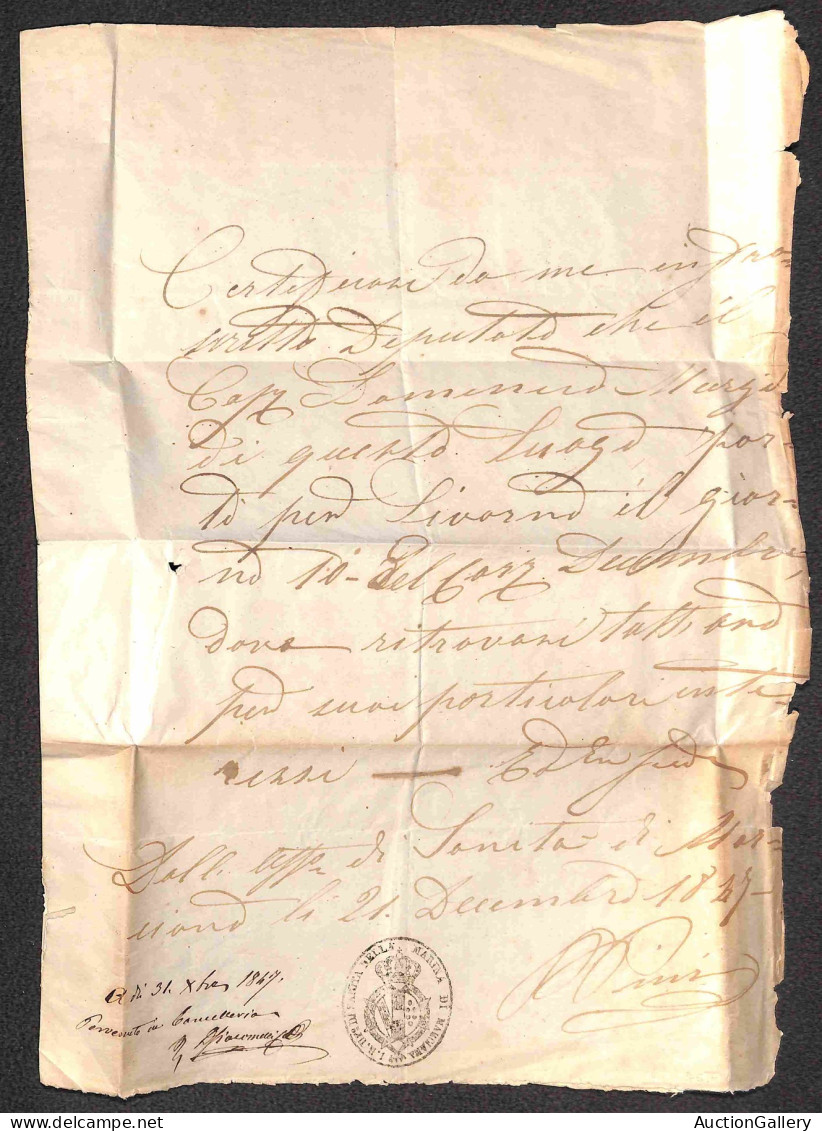 Certificasi da me infra-
scritto Deputato che il
Cap.º Domenico Murzi
di questo Luogo par-
tì per Livorno il gior-
no 10- del Corr.e Decembre,
dove ritrovasi tutt'ora
per suoi particolari inte-
ressi — Ed in fede
Dall' Uff.º di Sanità di Mar-
ciana li 21. Decembre 1847-
Pini
A dì 31. Xbre 1847.
Pervenuto in Cancelleria
Giacomelli
DELLA MARINA DI MARCIANA
AuctionGallery